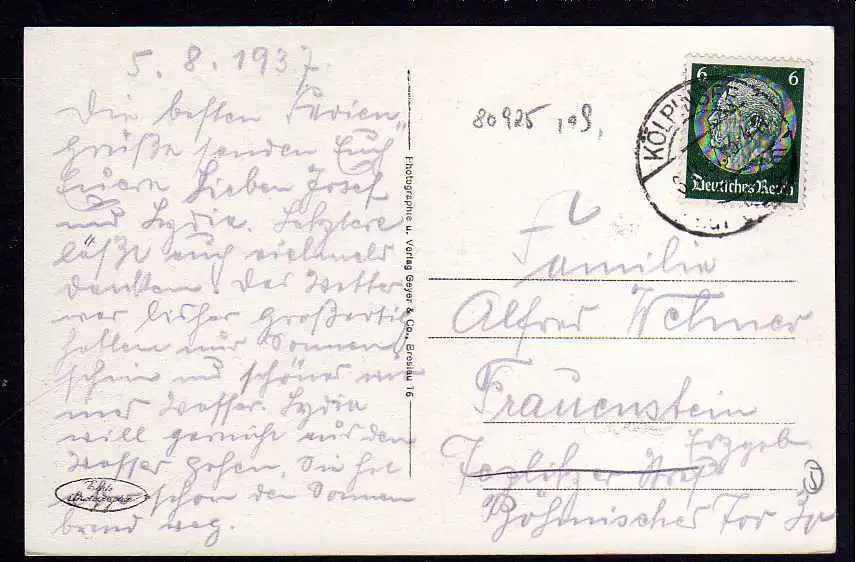 5. 8. 1937.
Die besten Ferien-
grüße senden Euch
Euere Lieben Josef
und Lydia. Letztere
läßt auch vielmals
danken. Das Wetter
war bisher großartig
hatten nur Sonnen-
schein und schönes
Wasser. Lydia
will gar nicht aus dem
Wasser gehen. Sie hat
schon den Sonnen-
brand weg.
Echte
Photographie
Photographie u. Verlag Geyer & Co., Breslau 16
80925
6 6
Deutsches Reich
KÖLPINSEE
Familie
Alfred
Frauenstein
Erzgeb.
Böhmischer Tor